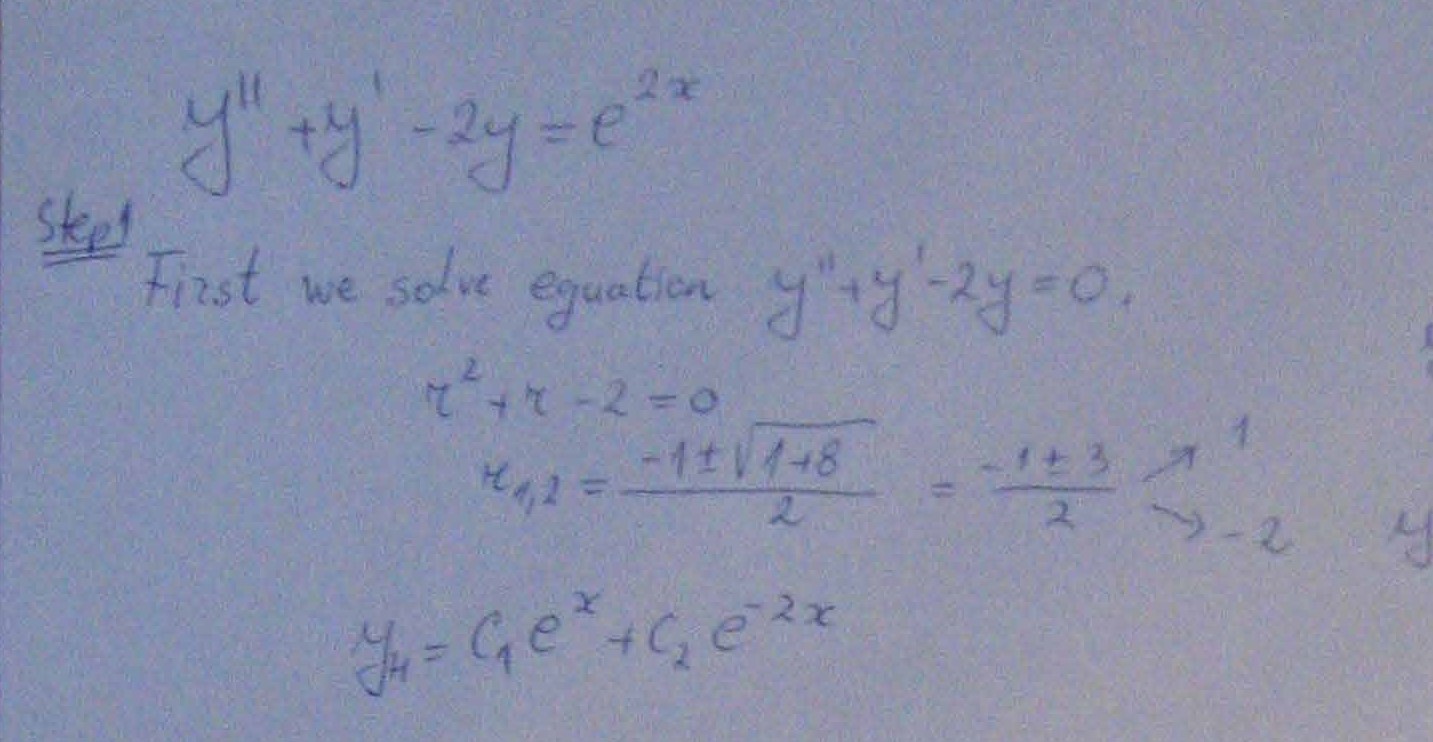 y'' + y' - 2y = e^{2x}
Step 1
First we solve equation y'' + y' - 2y = 0.
r^2 + r - 2 = 0
r_{1,2} = \frac{-1 \pm \sqrt{1+8}}{2} = \frac{-1 \pm 3}{2} ↗ 1 ↘ -2
y_H = C_1 e^x + C_2 e^{-2x}